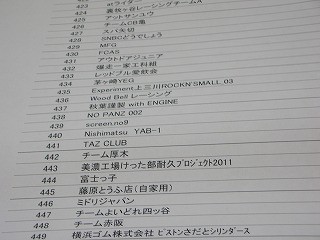 423 atライダー
424 裏筑ヶ谷レーシングチームA
425 アットサンユウ
426 チームCB亀
427 スパ矢切
428 SNBCどうでしょう
429 MFG
430 FCAS
431 アウトドアジュニア
432 爆走一家工科組
433 レッドブル愛飲会
434 茅ヶ崎YEG
435 Experiment上三川ROCKN'SMALL 03
436 Wood Bell レーシング
437 秋葉謹製 with ENGINE
438 NO PANZ 002
439 screen.no9
440 Nishimatsu YAB-1
441 TAZ CLUB
442 チーム厚木
443 美濃工場けった部耐久プロジェクト2011
444 富士っ子
445 藤原とうふ店(自家用)
446 ミドリジャパン
447 チームよいどれ四ッ谷
448 チーム赤阪
449 横浜ゴム株式会社 ピストンさだとシリンダース